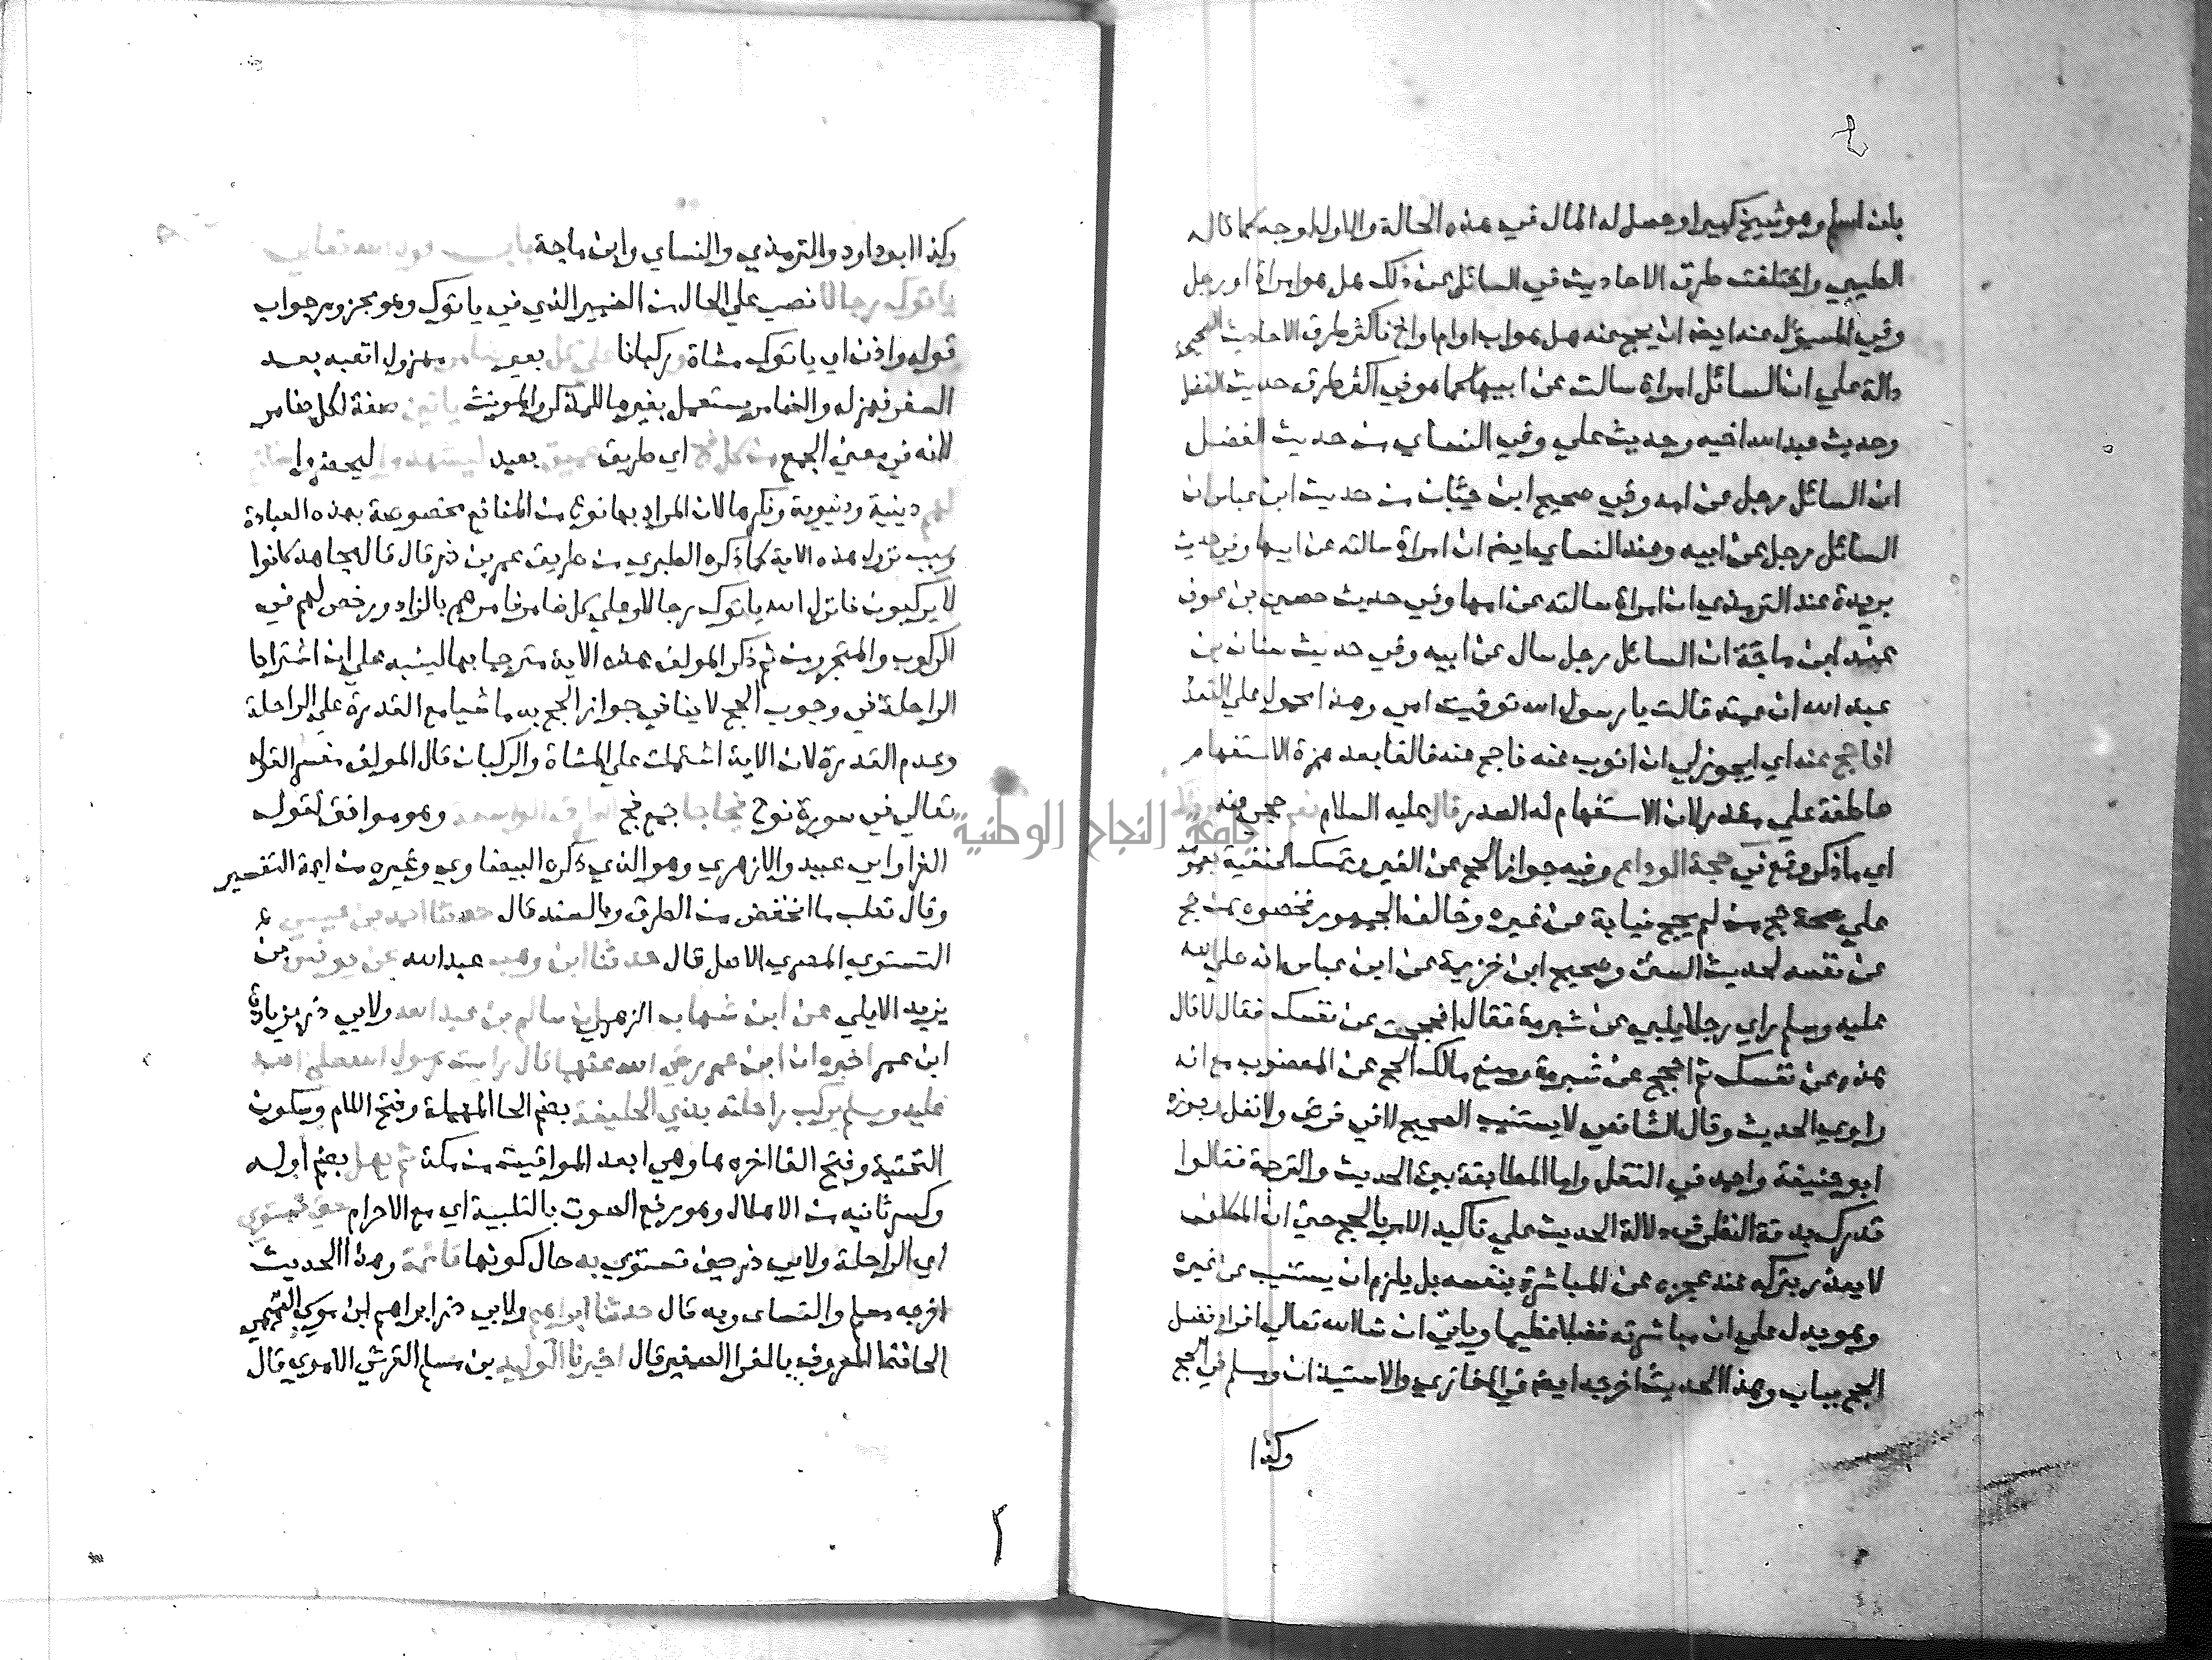 بان اسلم وهو شيخ كبير او حصل له المال في هذه الحالة والاول اوجه كما قاله
الطيبي واختلفت طرق الاحاديث في السائل عن ذلك هل هو امراة او رجل
وفي المسؤل عنه ايضا ان يحج عنه هل هو اب او ام او اخ فاكثر طرق الاحاديث الصحيحة
دالة علي ان السائل امراة سالت عن ابيها كما هو في اكثر طرق حديث الفضل
وحديث عبد الله اخيه وحديث علي وفي النساي من حديث الفضل
ان السائل رجل عن امه وفي صحيح ابن حبان من حديث ابن عباس ان
السائل رجل عن ابيه وعند النساي ايضا ان امراة سالته عن ابيها وفي حديث
بريدة عند الترمذي ان امراة سالته عن امها وفي حديث حصين بن عوف
عند ابن ماجة ان السائل رجل سال عن ابيه وفي حديث سنان بن
عبد الله ان عمته قالت يا رسول الله توفيت امي وهذا محمول علي التعدد
افاحج عنه اي ايجوز لي ان انوب عنه فاحج عنه فالفا بعد همزة الاستفهام
عاطفة علي مقدر لان الاستفهام له الصدر قال عليه السلام نعم حجي عنه وذلك
اي ما ذكر وقع في حجة الوداع وفيه جواز الحج عن الغير وتمسك الحنفية بعمومه
علي صحة حج من لم يحج نيابة عن غيره وخالف الجمهور فخصوه بمن حج
عن نفسه لحديث السنن وصحيح ابن خزيمة عن ابن عباس انه صلي الله
عليه وسلم راي رجلا يلبي عن شبرمة فقال احججت عن نفسك فقال لا قال
هذه عن نفسك ثم احجج عن شبرمة ومنع مالك الحج عن المعضوب مع انه
راوي الحديث وقال الشافعي لا يستنيب الصحيح لا في فرض ولا نفل وجوزه
ابو حنيفة واحمد في النفل واما المطابقة بين الحديث والترجمة فقالوا
تدرك بدقة النظر من دلالة الحديث علي تاكيد الامر بالحج حتي ان المكلف
لا يعذر بتركه عند عجزه عن المباشرة بنفسه بل يلزم ان يستنيب عن غيره
وهو يدل علي ان مباشرته فضلا عظيما وياتي ان شا الله تعالي افراد فضل
الحج بباب وهذا الحديث اخرجه ايضا في المغازي والاستيذان ومسلم في الحج
وكذا
وكذا ابو داود والترمذي والنساي وابن ماجة باب قول الله تعالي
ياتوك رجالا نصب علي الحال من الضمير الذي في ياتوك وهو مجزوم جواب
قوله واذن اي ياتوك مشاة وركبانا علي كل بعير ضامر مهزول اتعبه بعد
السفر فهزله والضامر يستعمل بغير ها للمذكر والمونث ياتين صفة لكل ضامر
لانه في معني الجمع من كل فج اي طريق عميق بعيد ليشهدوا ليحضروا منافع
لهم دينية ودنيوية ونكرها لان المراد بها نوع من المنافع مخصوصة بهذه العبادة
وسبب نزول هذه الاية كما ذكره الطبري من طريق عمر بن ذر قال قال مجاهد كانوا
لا يركبون فانزل الله ياتوك رجالا وعلي كل ضامر فامرهم بالزاد ورخص لهم في
الركوب والمتجر ومن ثم ذكر المولف هذه الاية مترجما بها لينبه علي ان اشتراط
الراحلة في وجوب الحج لا ينافي جواز الحج به ماشيا مع القدرة علي الراحلة
وعدم القدرة لان الاية اشتملت علي المشاة والركبان قال المولف مفسرا لقوله
تعالي في سورة نوح فجاجا جمع فج الطرق الواسعة وهو موافق لقول
الفرا وابي عبيد والازهري وهو الذي ذكره البيضاوي وغيره من ايمة التفسير
وقال ثعلب ما انخفض من الطرق وبالسند قال حدثنا احمد بن عيسي
التستوي المصري الاصل قال حدثنا ابن وهب عبد الله عن يونس بن
يزيد الايلي عن ابن شهاب الزهري ان سالم بن عبد الله ولابي ذر زيادة
ابن عمر اخبره ان ابن عمر رضي الله عنهما قال رايت رسول الله صلي الله
عليه وسلم يركب راحلته بذي الحليفة بضم الحا المهملة وفتح اللام وسكون
التحتية وفتح الفا اخره ها وهي ابعد المواقيت من مكة ثم يهل بضم اوله
وكسر ثانيه من الاهلال وهو رفع الصوت بالتلبية اي مع الاحرام حتي تستوي
اي الراحلة ولابي ذر حين تستوي به حال كونها قائمة وهذا الحديث
اخرجه مسلم والنساى وبه قال حدثنا ابراهيم ولابي ذر ابراهيم ابن موسي التميمي
الحافظ المعروف بالفرا الصغير قال اخبرنا الوليد بن مسلم القرشي الاموي قال
جامعة النجاح الوطنية